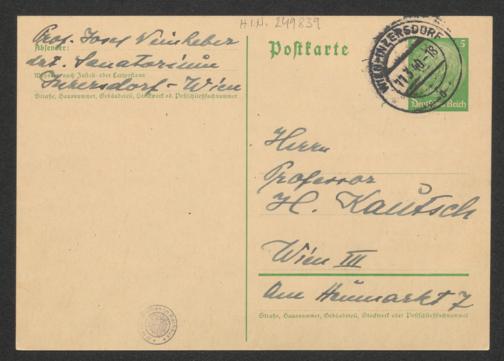 H.I.N. 249839
Prof. Josef Weinheber
Absender:
dzt. Sanatorium
Wohnort, auch Zustell- oder Leitpostamt
Inzersdorf-Wien
Straße, Hausnummer, Gebäudeteil, Stockwerk od. Postschließfachnummer
Postkarte
WIEN-INZERSDORF
11.3.40-18
5
Deutsches Reich
Herrn
Professor
H. Kautsch
Wien III
Am Heumarkt 7
Straße, Hausnummer, Gebäudeteil, Stockwerk oder Postschließfachnummer